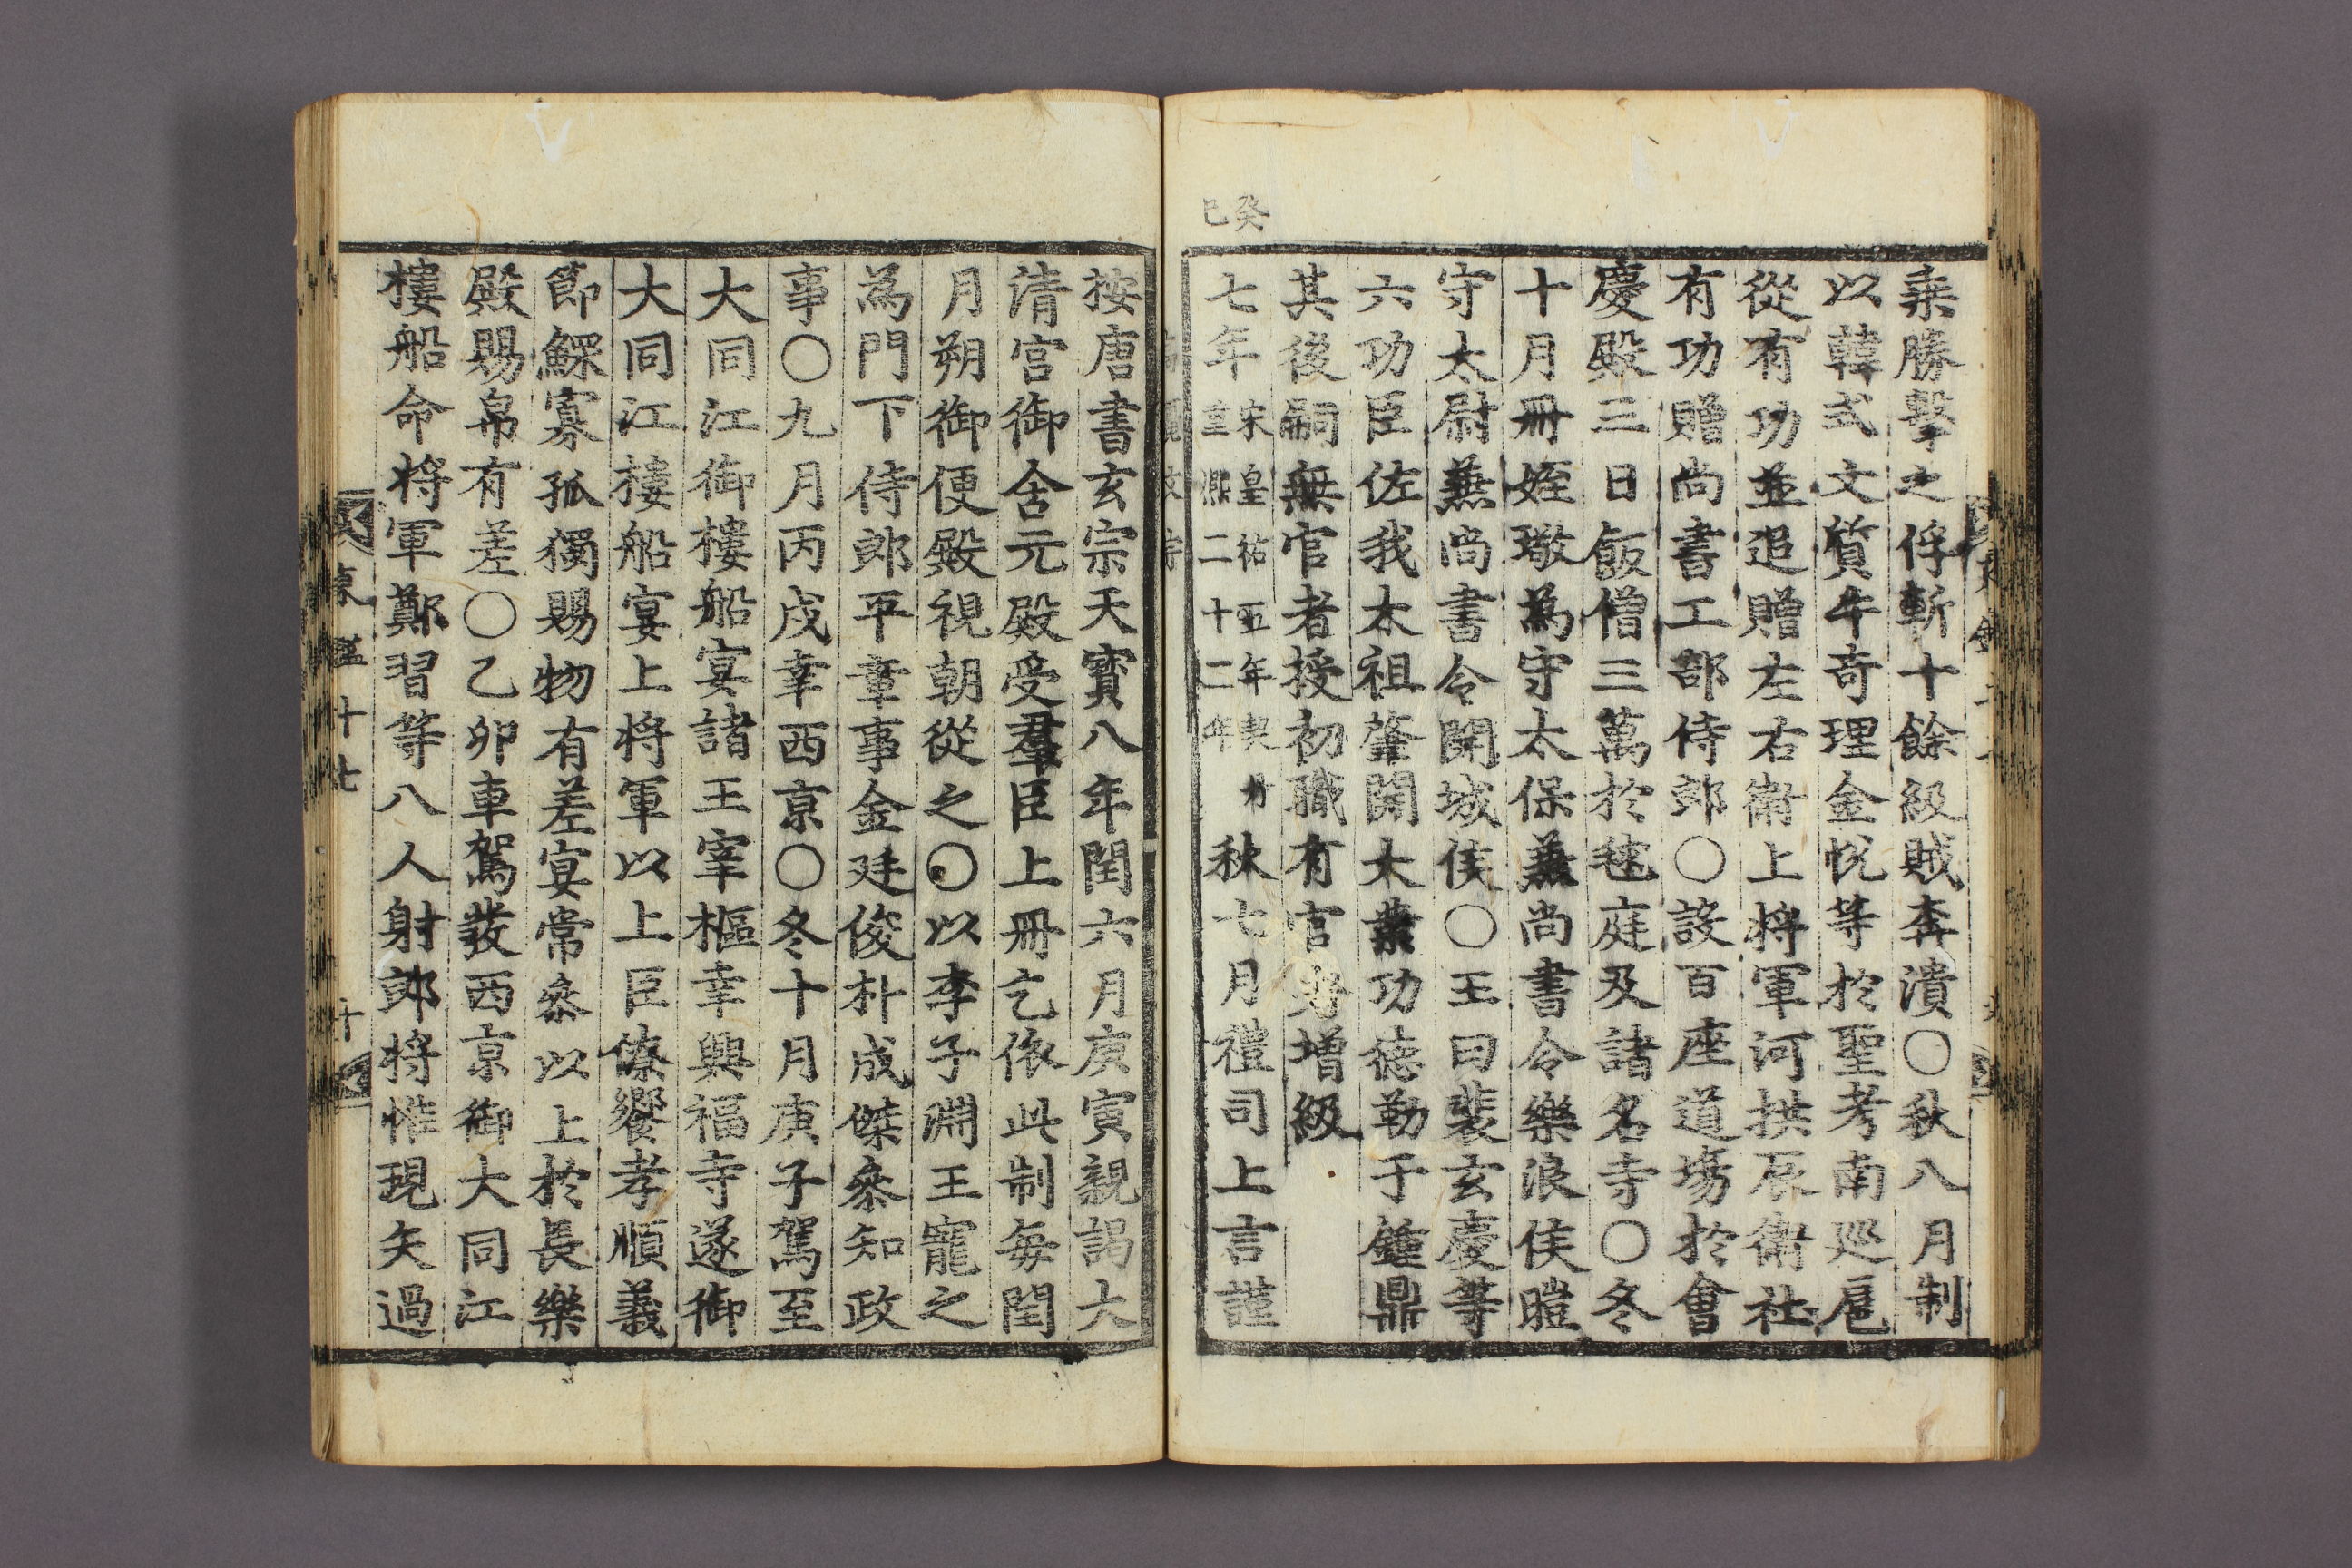 乘勝擊之俘斬十餘級賊奔潰○秋八月制
以韓式文質牛奇理金悅等於聖考南巡扈
從有功並追贈左右衛上將軍河拱辰衛社
有功贈尚書工部侍郎○設百座道場於會
慶殿三日飯僧三萬於毬庭及諸名寺○冬
十月冊姪璥為守太保兼尚書令樂浪侯暟
守太尉兼尚書令開城侯○王曰裴玄慶等
六功臣佐我太祖肇開大業功德勒于鍾鼎
其後嗣無官者授初職有官者增級
癸巳
七年宋皇祐五年契丹重熙二十二年秋七月禮司上言謹
按唐書玄宗天寶八年閏六月庚寅親謁大
清宮御含元殿受羣臣上冊乞依此制每閏
月朔御便殿視朝從之○以李子淵王寵之
為門下侍郎平章事金廷俊朴成傑叅知政
事○九月丙戌幸西京○冬十月庚子駕至
大同江御樓船宴諸王宰樞幸興福寺遂御
大同江樓船宴上將軍以上臣僚饗孝順義
節鰥寡孤獨賜物有差宴常叅以上於長樂
殿賜帛有差○乙卯車駕發西京御大同江
樓船命將軍鄭習等八人射郎將惟現矢過
東鑑十七
十